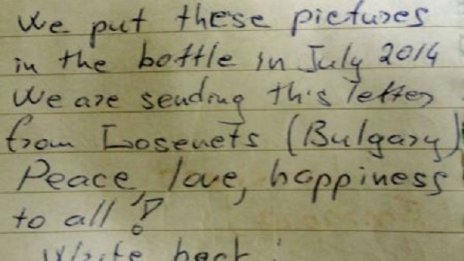 We put these pictures
in the bottle in July 2014
We are sending this letter
from Losenets (Bulgary)
Peace, love, happiness
to all!
Write back :